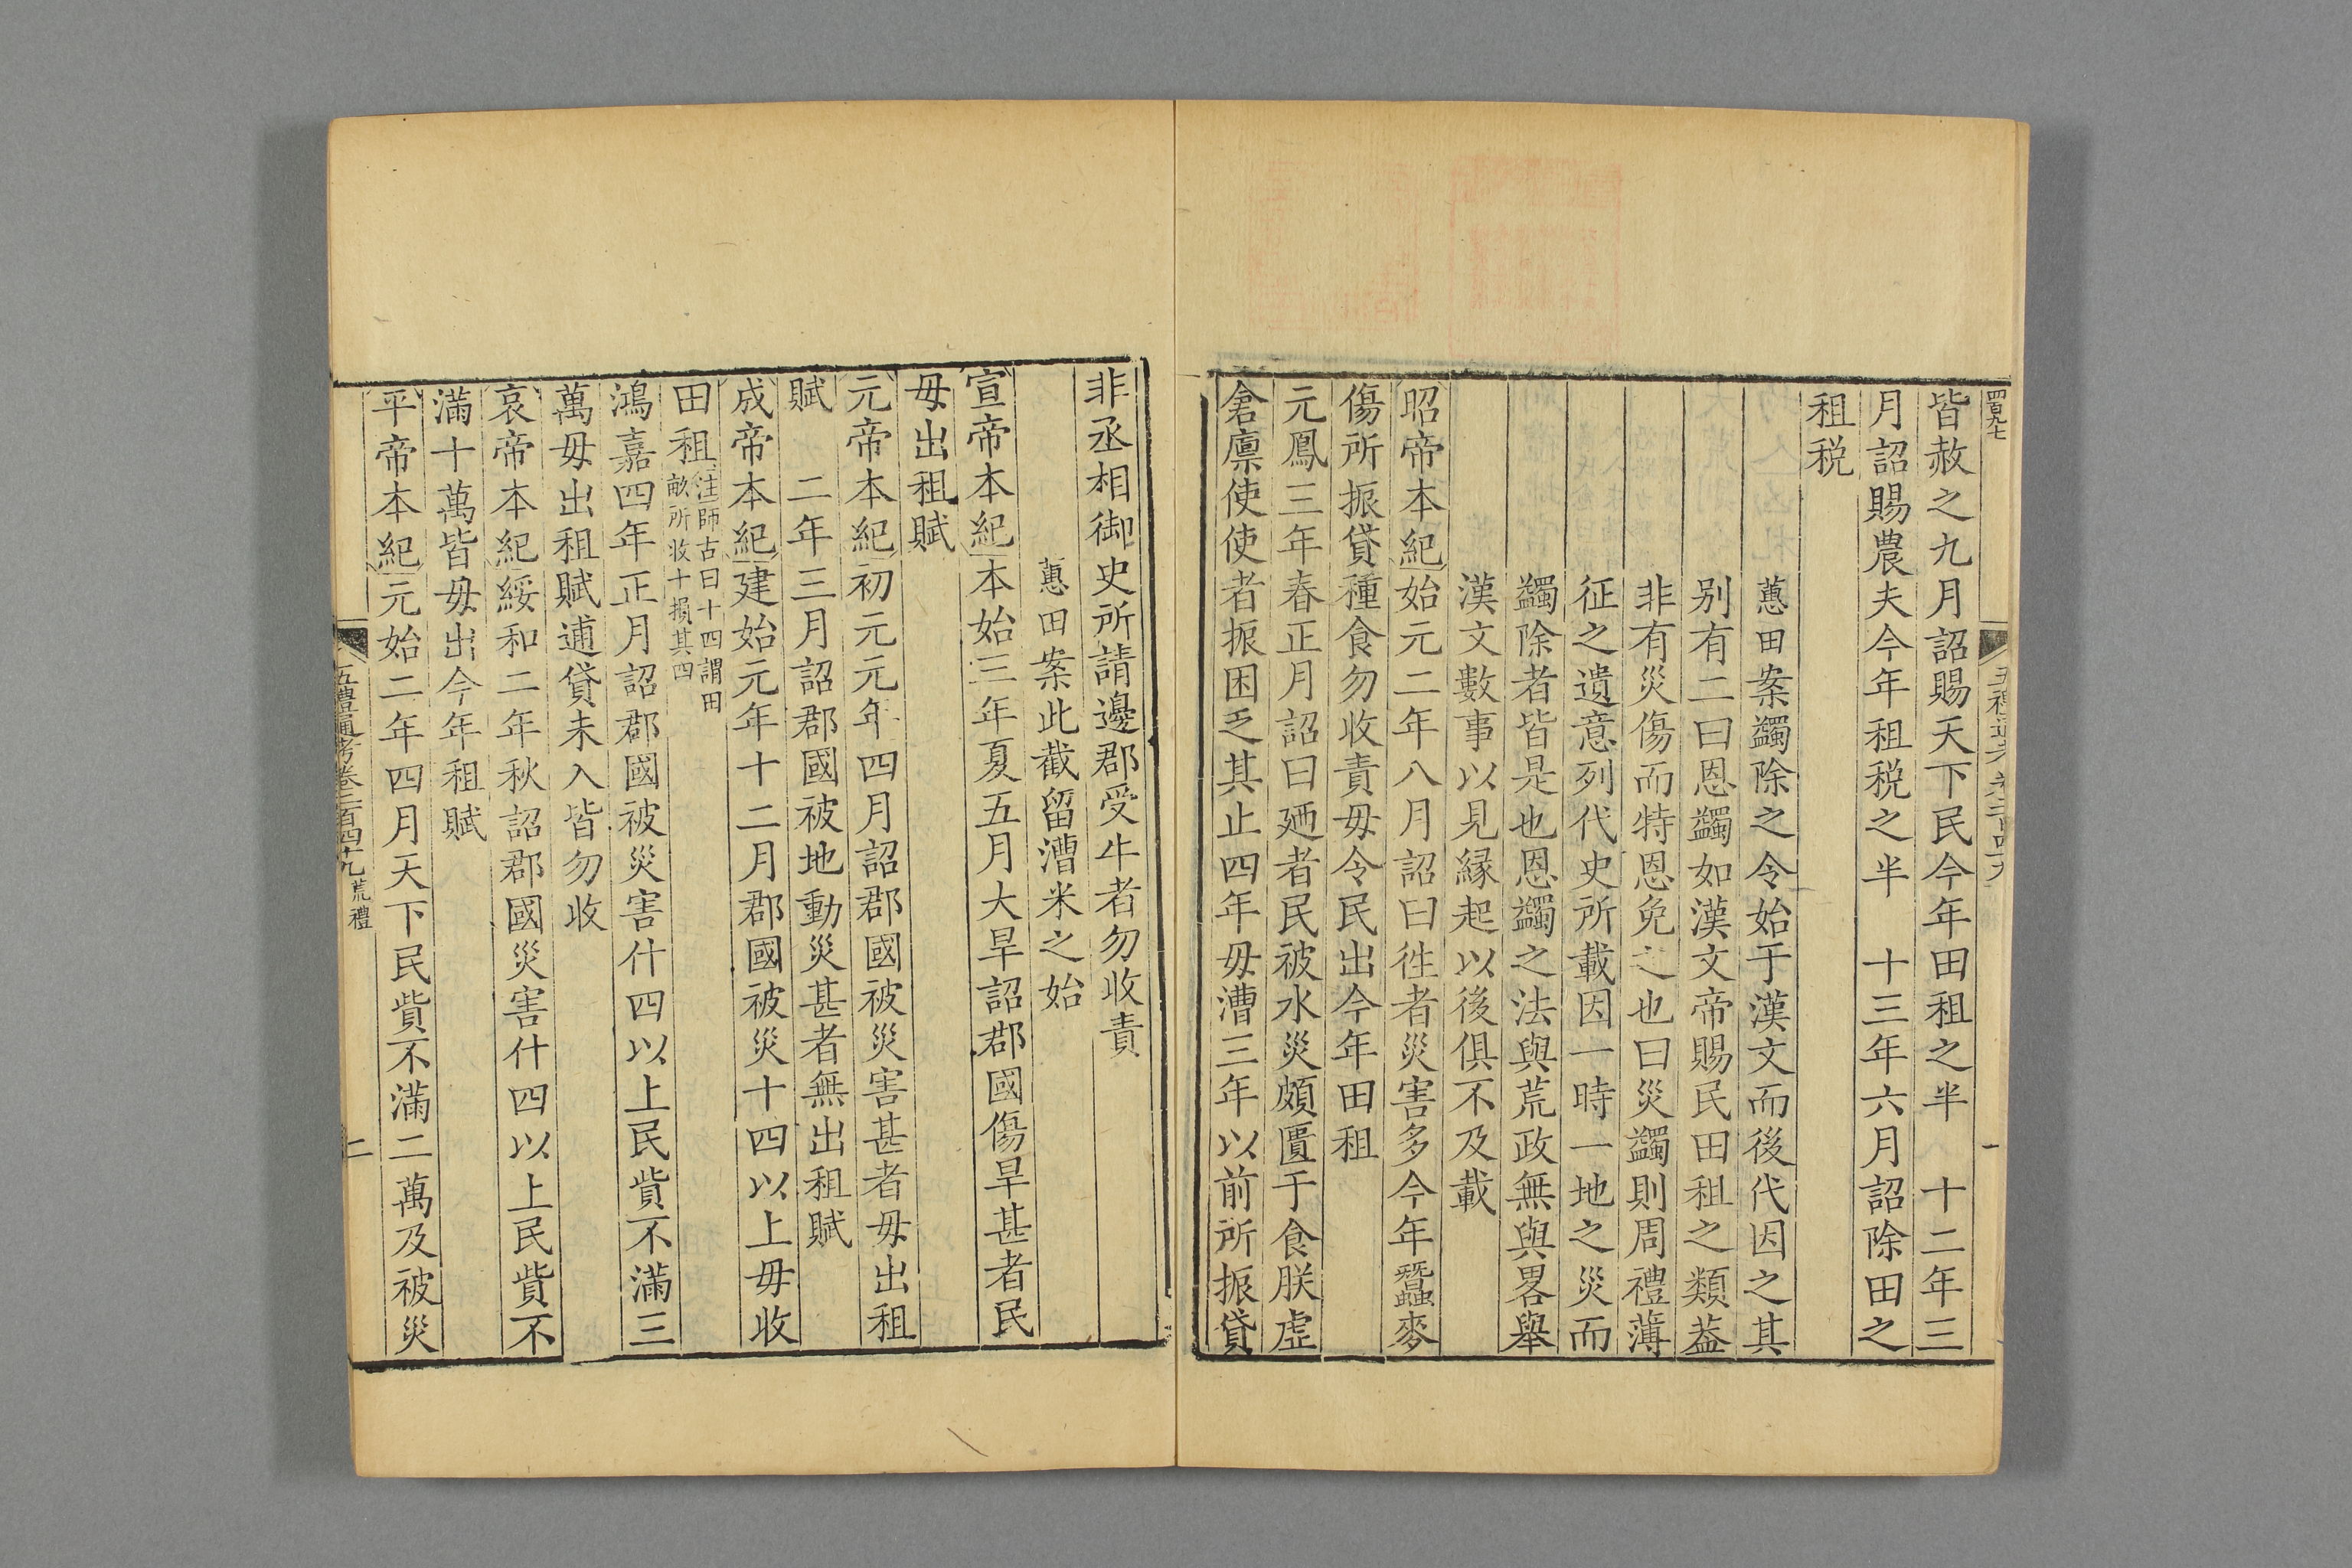 皆赦之九月詔賜天下民今年田租之半　十二年三
月詔賜農夫今年租税之半　十三年六月詔除田之
租税
蕙田案蠲除之令始于漢文而後代因之其
别有二曰恩蠲如漢文帝賜民田租之類葢
非有災傷而特恩免之也曰災蠲則周禮薄
征之遺意列代史所載因一時一地之災而
蠲除者皆是也恩蠲之法與荒政無與畧舉
漢文數事以見縁起以後俱不及載
昭帝本紀始元二年八月詔曰徃者災害多今年蠶麥
傷所振貸種食勿收責毋令民出今年田租
元鳳三年春正月詔曰廼者民被水災頗匱于食朕虛
倉廪使使者振困乏其止四年毋漕三年以前所振貸
非丞相御史所請邊郡受牛者勿收責
蕙田案此截留漕米之始
宣帝本紀本始三年夏五月大旱詔郡國傷旱甚者民
毋出租賦
元帝本紀初元元年四月詔郡國被災害甚者毋出租
賦　二年三月詔郡國被地動災甚者無出租賦
成帝本紀建始元年十二月郡國被災十四以上毋收
田租注師古曰十四謂田畝所收十損其四
鴻嘉四年正月詔郡國被災害什四以上民貲不滿三
萬毋出租賦逋貸未入皆勿收
哀帝本紀綏和二年秋詔郡國災害什四以上民貲不
滿十萬皆毋出今年租賦
平帝本紀元始二年四月天下民貲不滿二萬及被災
五禮通考卷二百四十九 荒禮
二